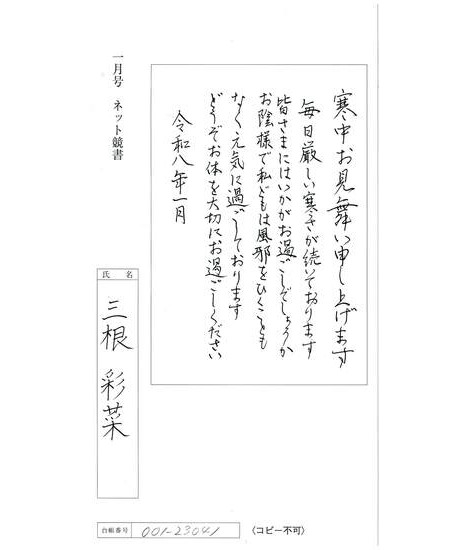 寒中お見舞い申し上げます
毎日厳しい寒さが続いております
皆さまにはいかがお過ごしでしょうか
お陰様で私どもは風邪をひくことも
なく元気に過ごしております
どうぞお体を大切にお過ごしください
令和八年一月
一月号 ネット競書
氏名
三根 彩菜
台帳番号 001-23041
〈コピー不可〉